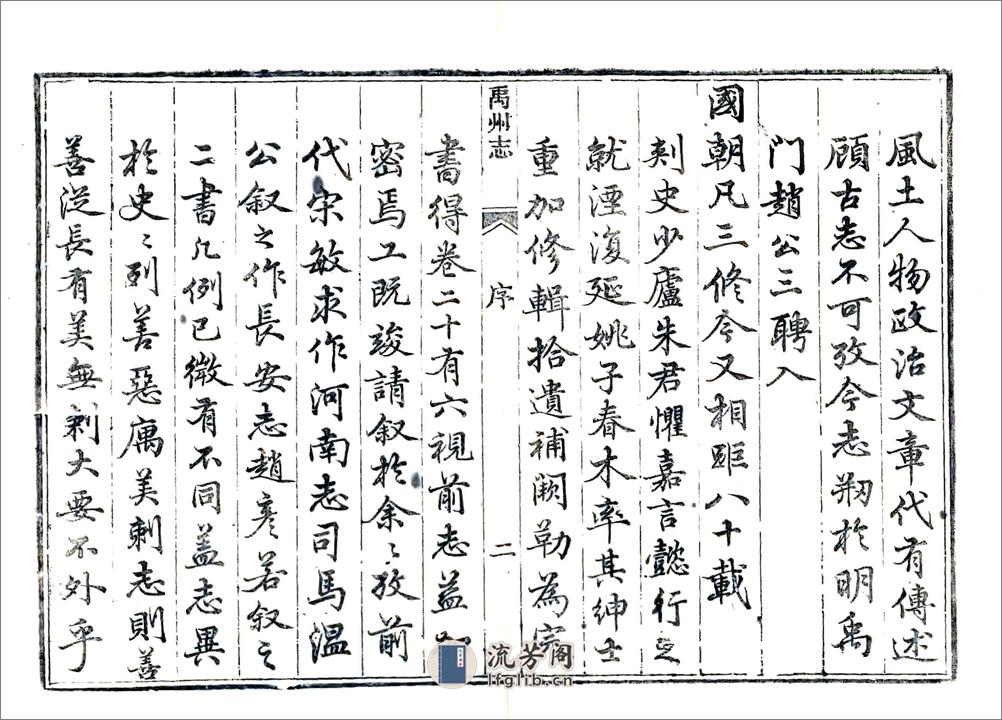 風土人物政治文章代有傳述
顧古志不可攷今志剏於明禹
門趙公三聘入
國朝凡三修今又相距八十載
刺史少廬朱君懼嘉言懿行之
就湮復延姚子春木率其紳士
重加修輯拾遺補闕勒為完
書得卷二十有六視前志益加
密焉工既竣請叙於余〻攷前
代宋敏求作河南志司馬溫
公叙之作長安志趙彥若叙之
二書凡例已微有不同盖志異
於史〻列善惡寓美刺志則善
善從長有美無刺大要不外乎
禹州志
序
二
流芳阁
lfglib.cn